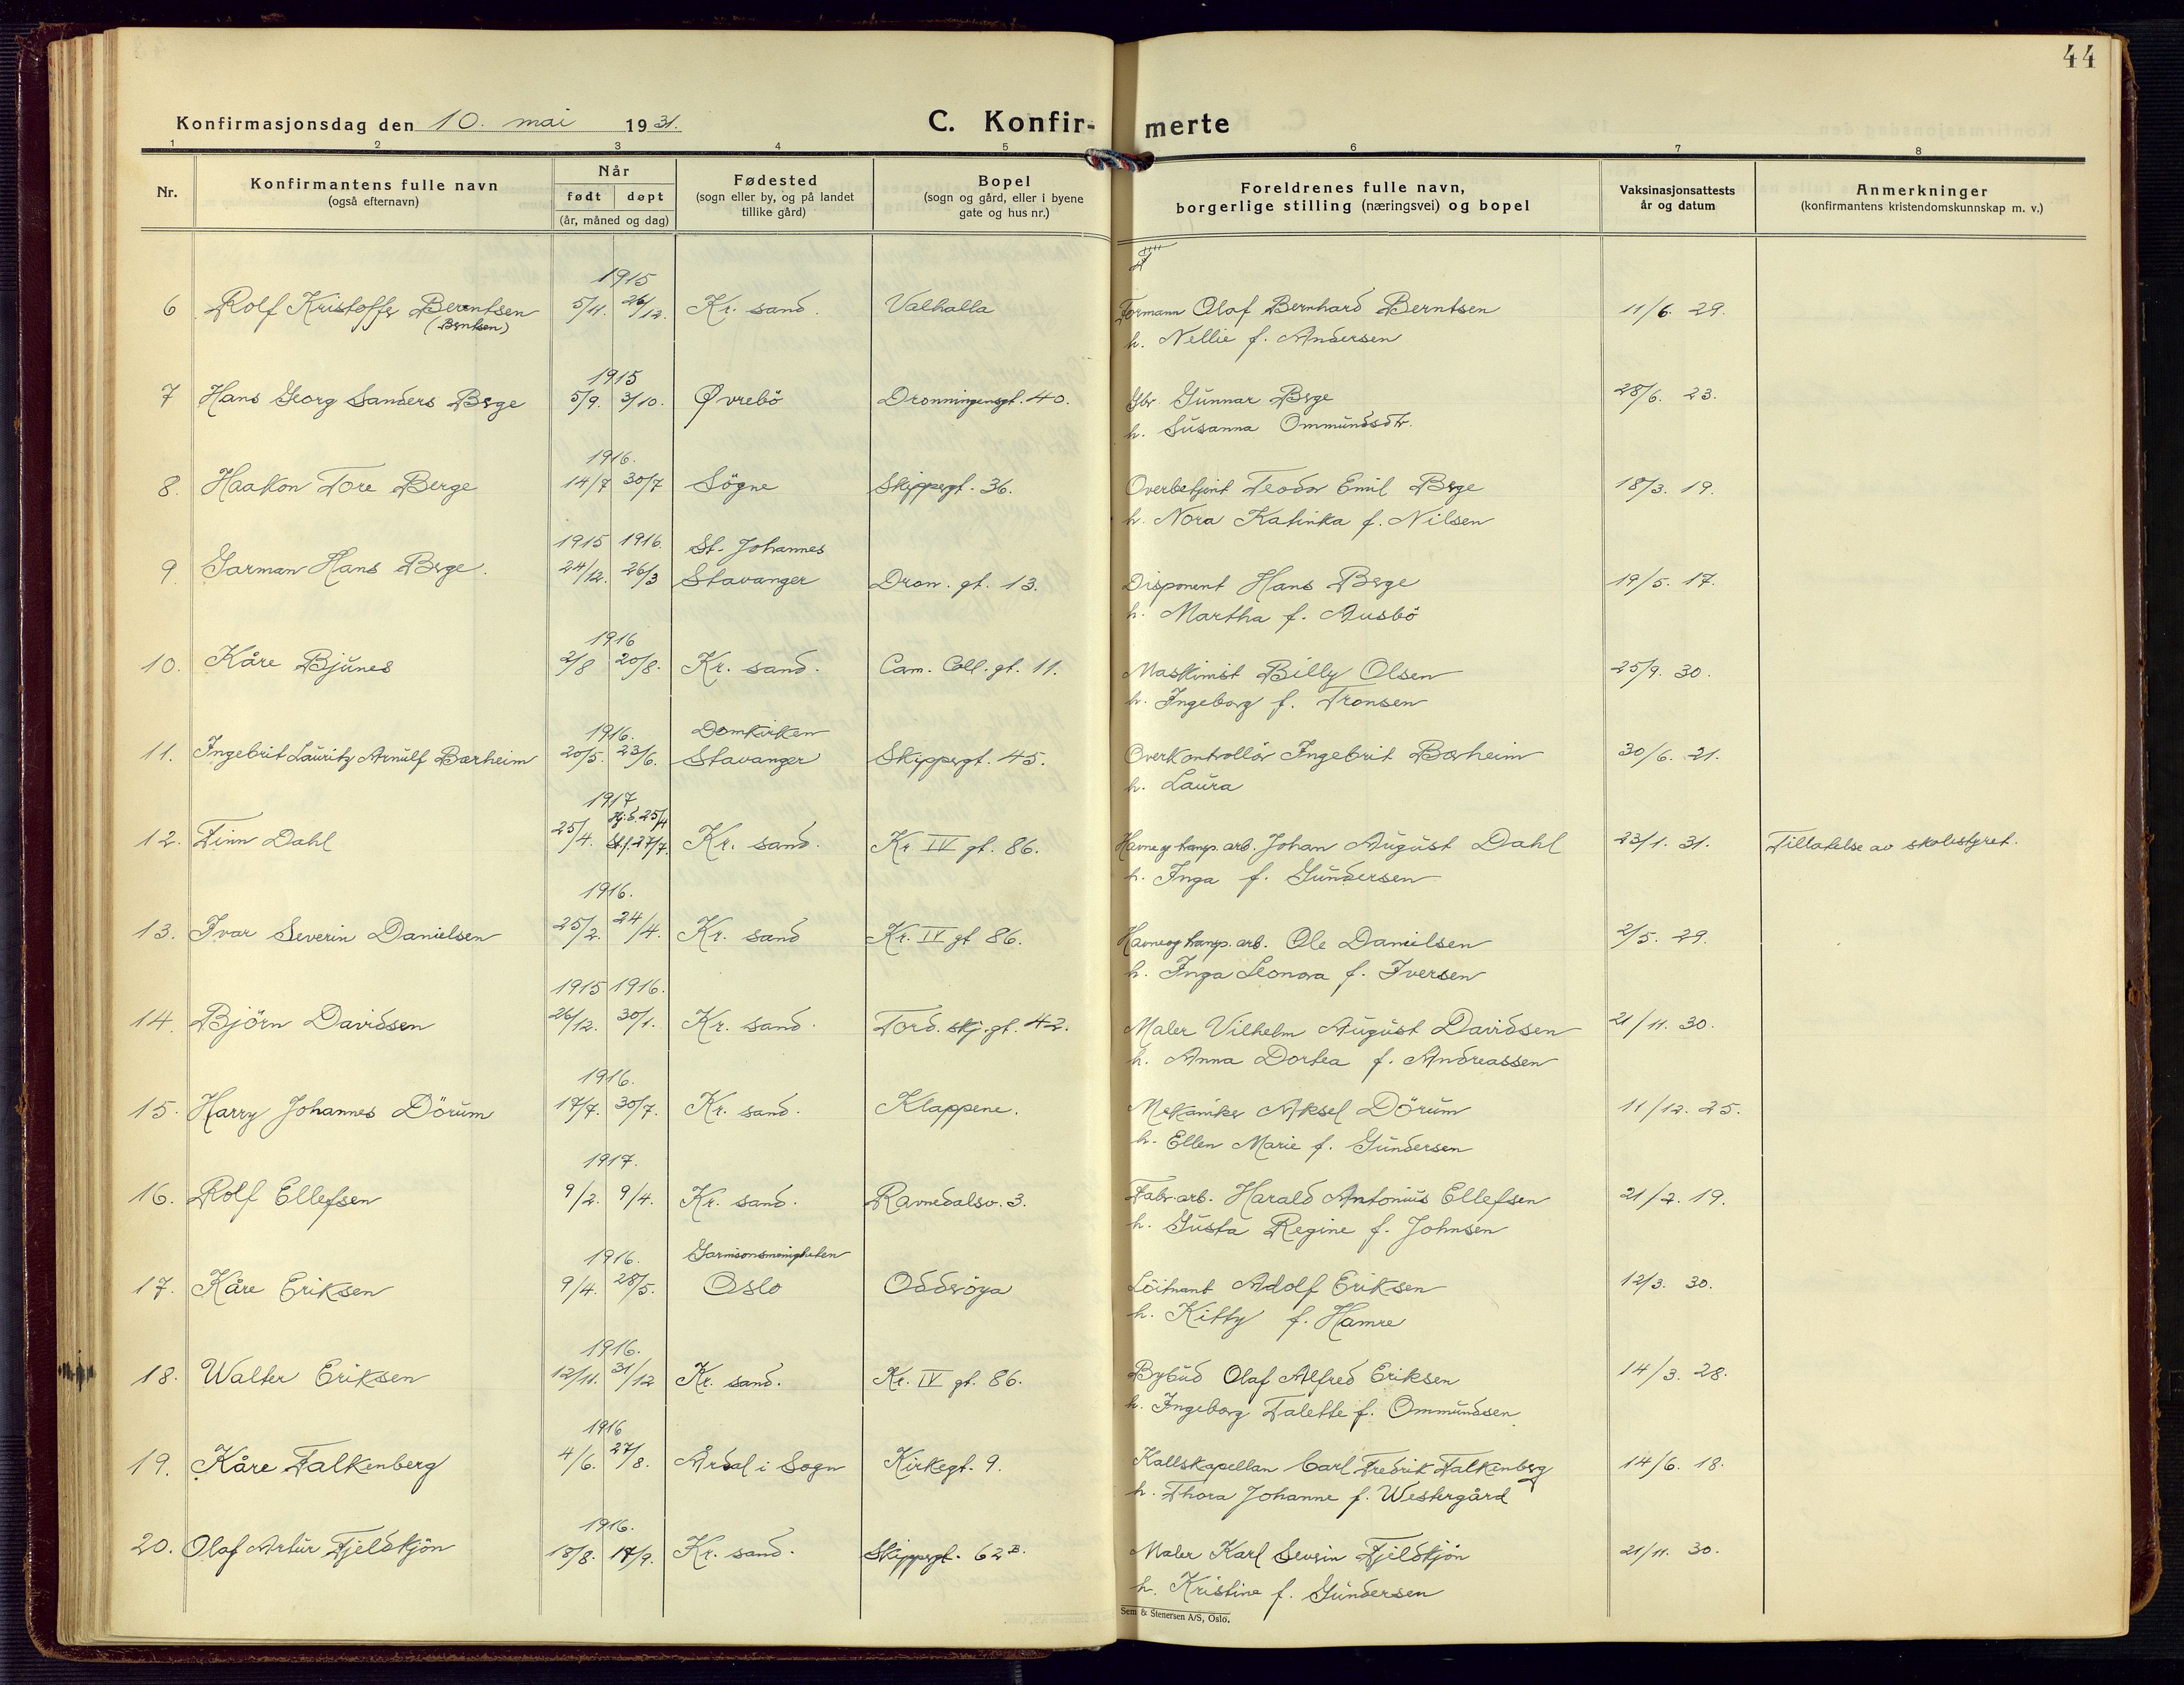 44
Konfirmasjonsdag den 10. mai 1931.
C. Konfir- merte
1 2 3 4 5 6 7 8
Nr.
Konfirmantens fulle navn
(også efternavn)
Når
født døpt
(år, måned og dag)
Fødested
(sogn eller by, og på landet
tillike gård)
Bopel
(sogn og gård, eller i byene
gate og hus nr.)
Foreldrenes fulle navn,
borgerlige stilling (næringsvei) og bopel
Vaksinasjonsattests
år og datum
Anmerkninger
(konfirmantens kristendomskunnskap m. v.)
1915
6 Rolf Kristoffer Berentsen 5/11. 26/12. Kr. sand. Valhalla Formann Olaf Bernhard Berntsen 11/6. 29.
(Berntsen) h. Nellie f. Andersen
1915
7 Hans Georg Sanders Berge 5/9. 3/10. Øvrebö Dronningensgt. 40. Gbr. Gunnar Berge 28/6. 23.
h. Susanna Ommundsdtr.
1916.
8. Haakon Tore Berge 14/7 30/7 Sögne Skippergt. 36. Overbetjent Teodor Emil Berge 18/3. 19.
h. Nora Katinka f. Nilsen
1915 1916. St. Johannes
9. Garman Hans Berge. 24/12. 26/3 Stavanger Dron. gt. 13. Disponent Hans Berge 19/5. 17.
h. Martha f. Ausbö
1916
10. Kåre Bjunes 2/8 20/8. Kr. sand. Cam. Coll. gt. 11. Maskinist Billy Olsen 25/9. 30.
h. Ingeborg f. Tronsen
1916. Domkirken
11. Ingebrit Lauritz Arnulf Bærheim 20/5. 23/6. Stavanger Skippergt. 45. Overkontrollör Ingebrit Bærheim 30/6. 21.
h. Laura
1917
Hj.d. 25/4
12. Finn Dahl 25/4. St.f. 27/7. Kr. sand. Kr IV gt. 86. Havne og transp. arb. Johan August Dahl 23/1. 31. Tillatelse av skolestyret.
h. Inga f. Gundersen
1916.
13. Ivar Severin Danielsen 25/2. 24/4. Kr. sand Kr. IV gt 86. Havne og transp. arb. Ole Danielsen 2/5. 29.
h. Inga Leonora f. Iversen
1915 1916.
14. Björn Davidsen 26/12. 30/1. Kr. sand. Tord. skj. gt. 42. Maler Vilhelm August Davidsen 21/11. 30.
h. Anna Dortea f. Andreassen
1916.
15. Harry Johannes Dörum 17/7. 30/7. Kr. sand. Klappene. Mekaniker Aksel Dörum 11/12. 25.
h. Ellen Marie f. Gundersen
1917.
16. Rolf Ellefsen 9/2. 9/4. Kr. sand. Ravnedalsv. 3. Fabr. arb. Harald Antonius Ellefsen 21/2. 19.
h. Gusta Regine f. Johnsen
1916. Garnisonsmenigheten
17. Kåre Eriksen 9/4. 28/5. Oslo Odderöya Löitnant Adolf Eriksen 12/3. 30.
h. Kitty f. Hamre
1916.
18. Walter Eriksen 12/11. 31/12 Kr. sand. Kr. IV gt. 86. Bybud Olaf Alfred Eriksen 14/3. 28.
h. Ingeborg Talette f. Ommundsen
1916
19. Kåre Falkenberg 4/6. 27/8. Årdal i Sogn Kirkegt. 9. Kallskapellan Carl Fredrik Falkenberg 14/6. 18.
h. Thora Johanne f. Westergård
1916.
20. Olaf Artur Fjeldkjön 18/8. 17/9. Kr. sand. Skippergt. 62 B. Maler Karl Severin Fjeldkjön 21/11. 30.
h. Kristine f. Gundersen
Sem & Stenersen A/S, Oslo.